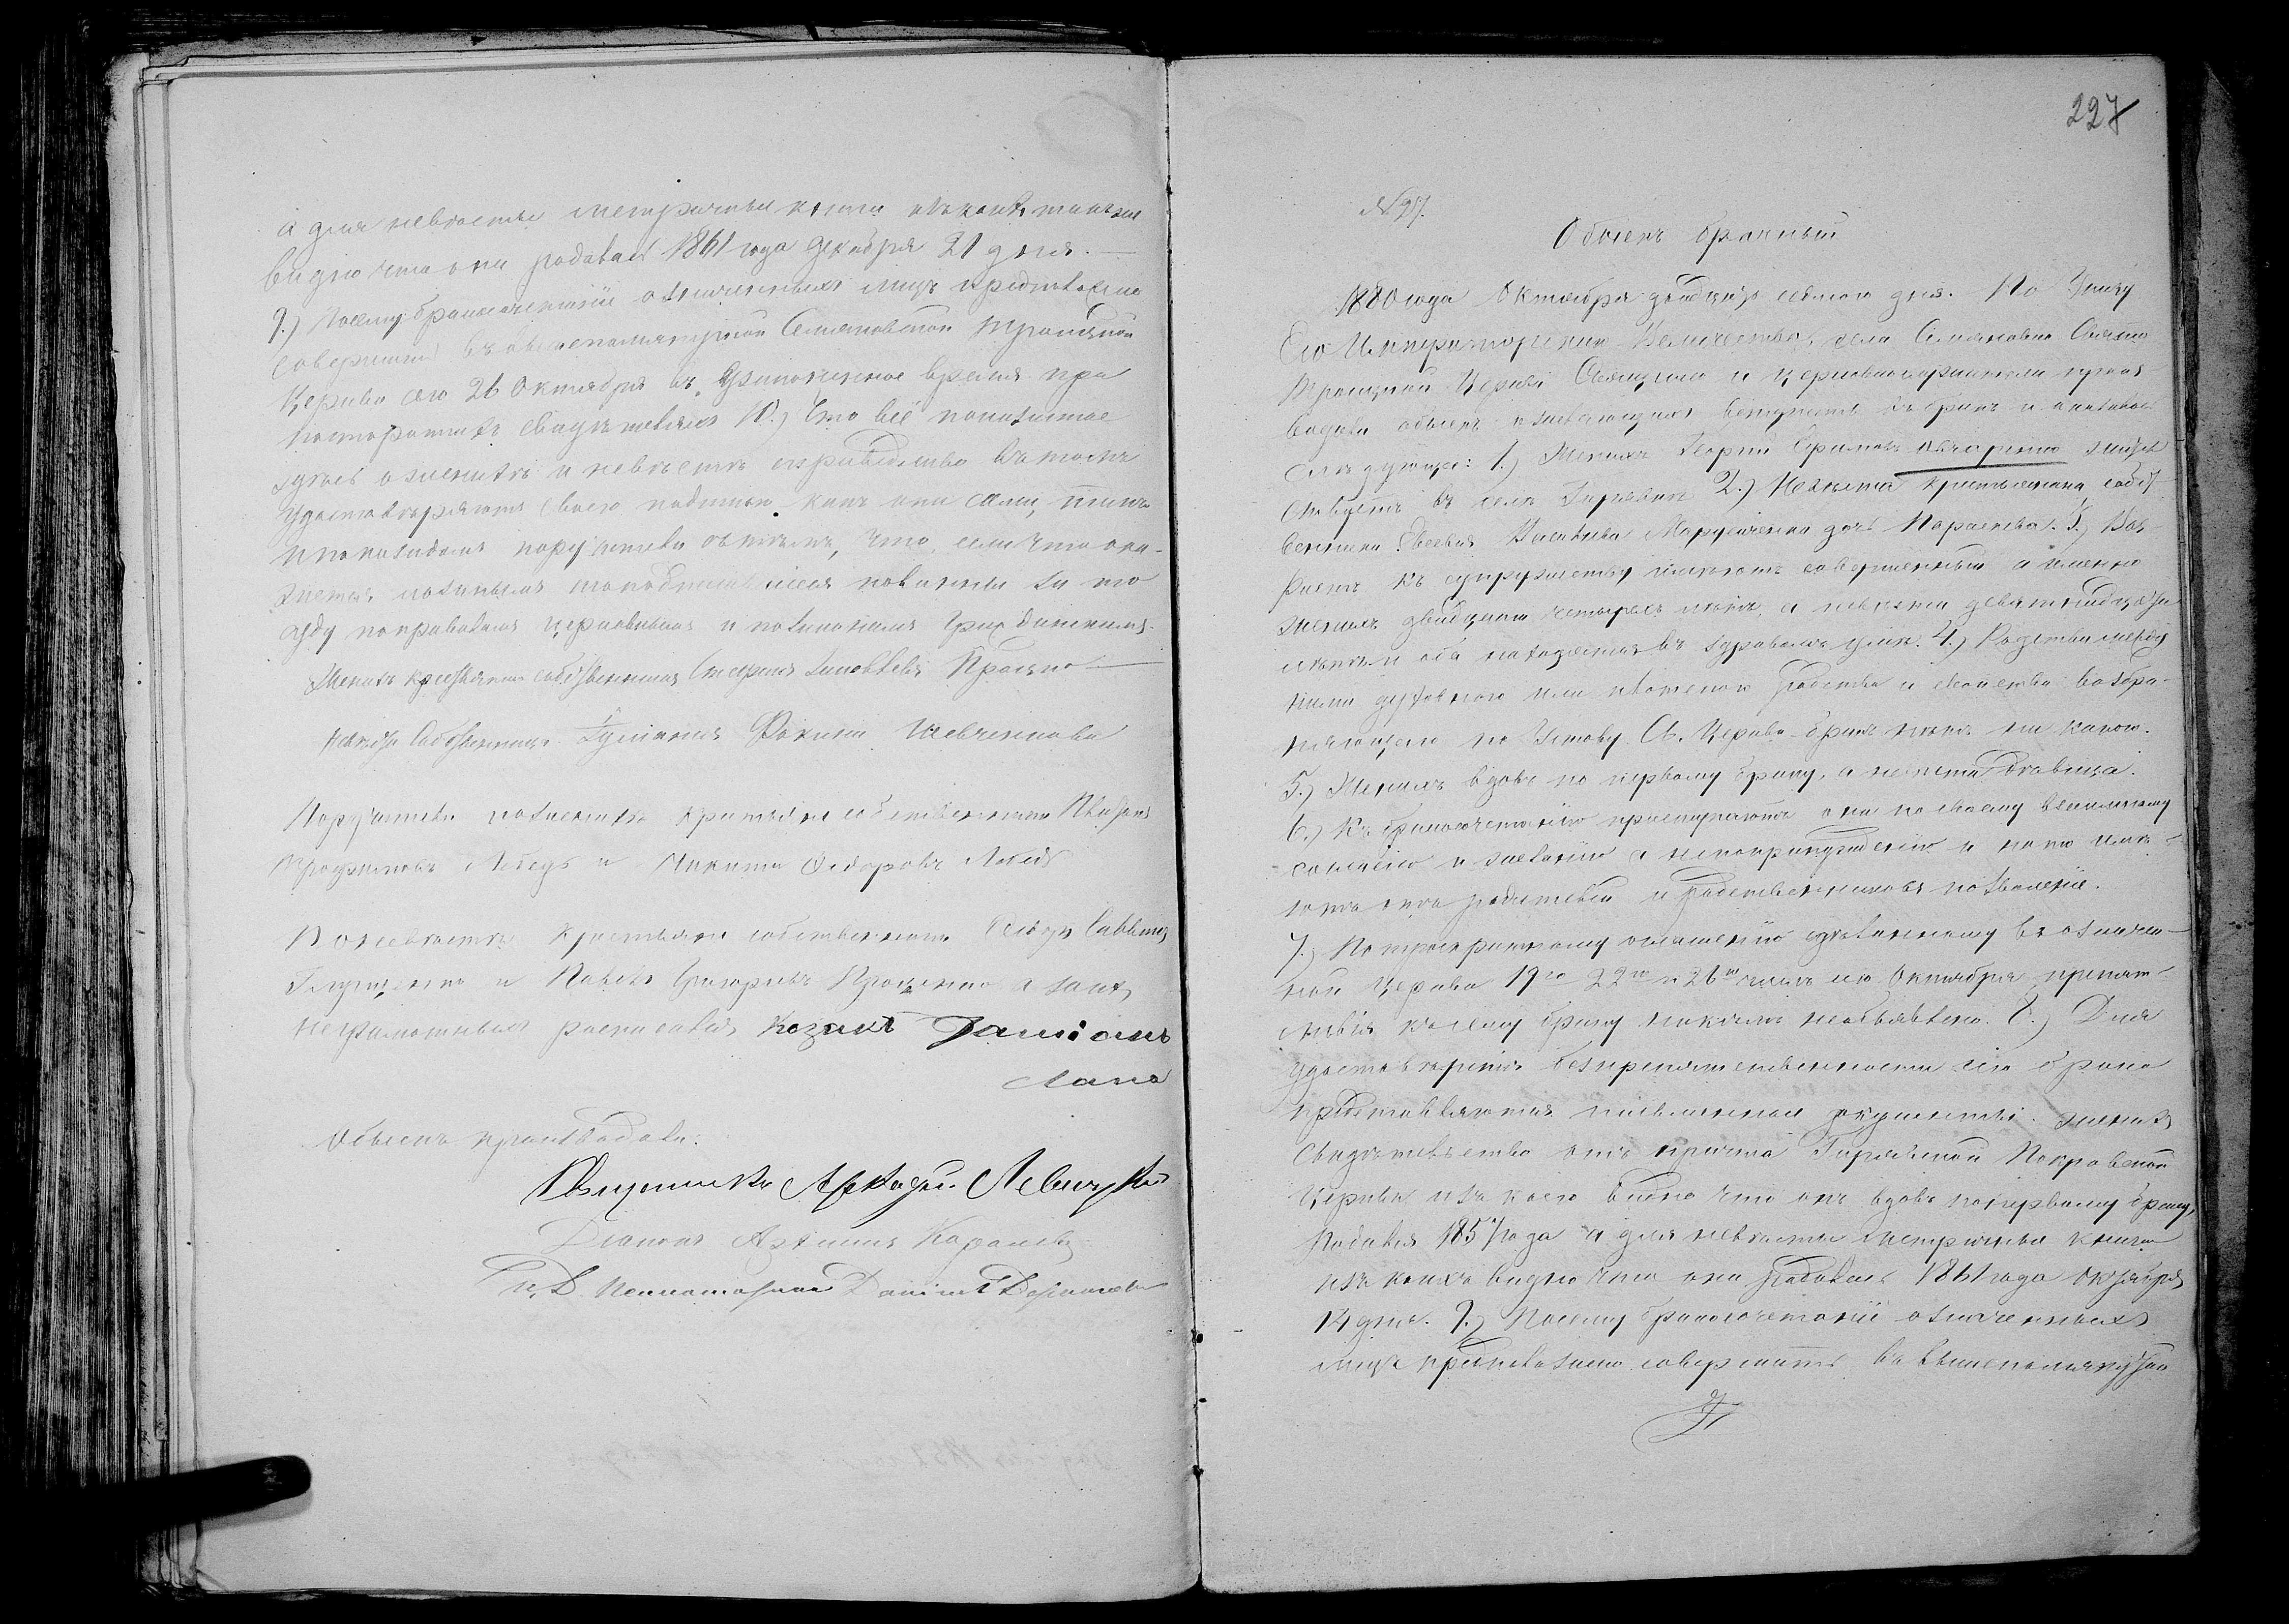 а для невесты метрическия книги изъ коихъ также
видно что она родилась 1861 года Декабря 21 дня. —
9.) Посему бракосочетаніе означенныхъ лицъ предположено
совершить въ вышепомянутой Семяновской Троицкой
Церкви сего 26 Октября въ узаконенное время при
постороннихъ свидѣтеляхъ 10.) Что всё показанное
здѣсь о женихѣ и невѣстѣ справедливо въ томъ
удостовѣряютъ своею подписью какъ они сами, такъ
и по каждомъ поручители съ тѣмъ, что, если что ока-
жется ложнымъ то подписавшіеся повинны за то
суду по правиламъ церковнымъ и по законамъ гражданскимъ.
Женихъ крестьянинъ собственникъ Стефанъ Зиновьевъ
невѣста Собственница Іуліанія Фокина Шевченкова
Поручители по женихѣ крестьяне собственники
Трофимовъ Лебедь и Никита Федоровъ Лебедь
По невѣстѣ крестьяне собственники Федоръ Саввинъ
и Павелъ Григорьевъ а за ихъ
неграмотныхъ росписался Козакъ Даміанъ
Лапа
Обыскъ производили:
Священникъ Аркадій Левицкій
Діаконъ Королевъ
И. Д. Псаломщика Даніилъ
227
№ 97.
Обыскъ брачный
1880 года Октября двадцать седьмого дня. По Указу
Его Императорскаго Величества, села Семяновки Свято
Троицкой Церкви Священно и церковнослужители произ-
водили обыскъ о желающихъ вступить въ бракъ и оказалось
слѣдующее: 1.) Женихъ Георгій Ефимовъ Овчаренко житель-
ствуетъ въ селѣ Гирявкѣ 2.) Невѣста крестьянина собст-
венника Евсевія Васильева Марусиченка дочь Параскева. 3.) Воз-
растъ къ супружеству имѣютъ совершенный а именно
женихъ двадцати четырехъ лѣтъ, а невѣста девятнадцати
лѣтъ и оба находятся въ здравомъ умѣ. 4.) Родства между
ними духовного или плотского родства и свойства возбра-
няющаго по Уставу Св. Церкви бракъ нѣтъ ни какого.
5.) Женихъ вдовъ по первому браку, а невѣста дѣвица.
6.) Къ бракосочетанію приступаютъ они по своему взаимному
согласію и желанію а не по принужденію и на то имѣ-
ютъ отъ родителей и родственниковъ позволеніе.
7.) По троекратному оглашенію сдѣланному въ означен-
ной Церкви 19го 22го и 26го числъ сего Октября препят-
ствія къ сему браку никѣмъ необъявлено. 8.) Для
удостовѣренія безпрепятственности сего брака
представляются письменные документы: жениха
свидѣтельство отъ причта Гирявской Покровской
Церкви изъ коего видно что онъ вдовъ по первому браку,
родился 185 года а для невѣсты метрическия книги
изъ коихъ видно что она родилась 1861 года Октября
14 дня. 9.) Посему бракосочетаніе означенныхъ
лицъ предположено совершить въ вышепомянутой